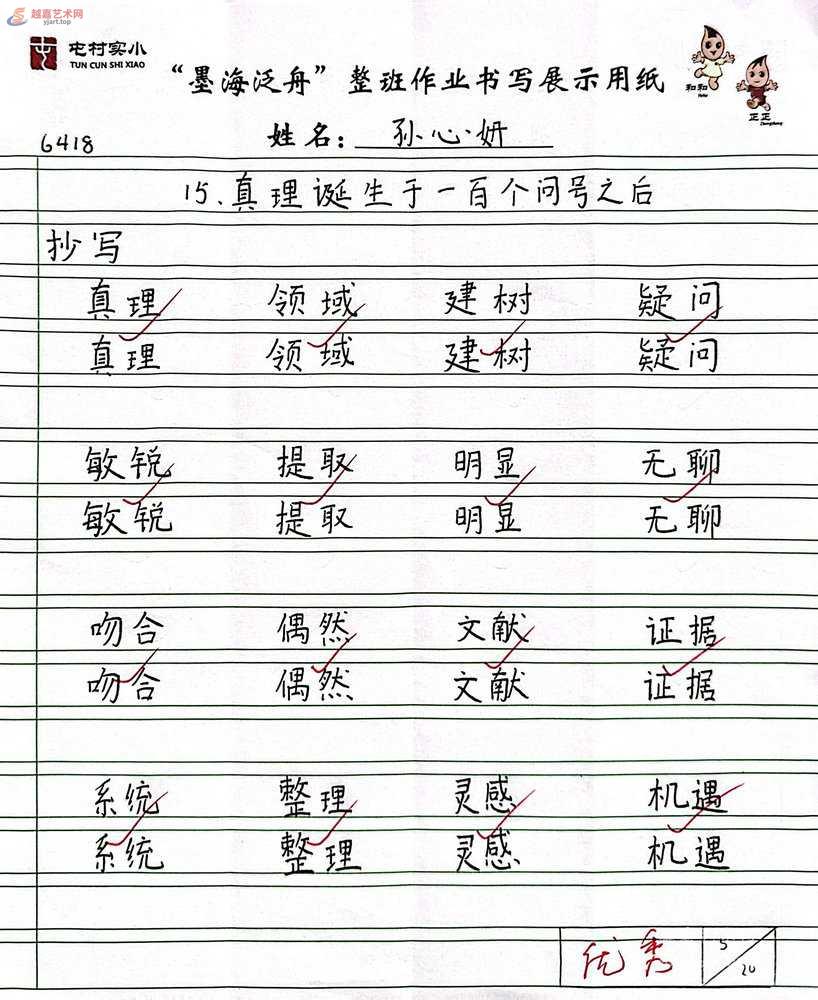 越嘉艺术网
yjart.top
屯村实小
TUN CUN SHI XIAO
“墨海泛舟”整班作业书写展示用纸
和和
HeHe
正正
ZhengZheng
6418
姓名：孙心妍
15、真理诞生于一百个问号之后
抄写
真理 领域 建树 疑问
真理 领域 建树 疑问
敏锐 提取 明显 无聊
敏锐 提取 明显 无聊
吻合 偶然 文献 证据
吻合 偶然 文献 证据
系统 整理 灵感 机遇
系统 整理 灵感 机遇
优秀 5/20